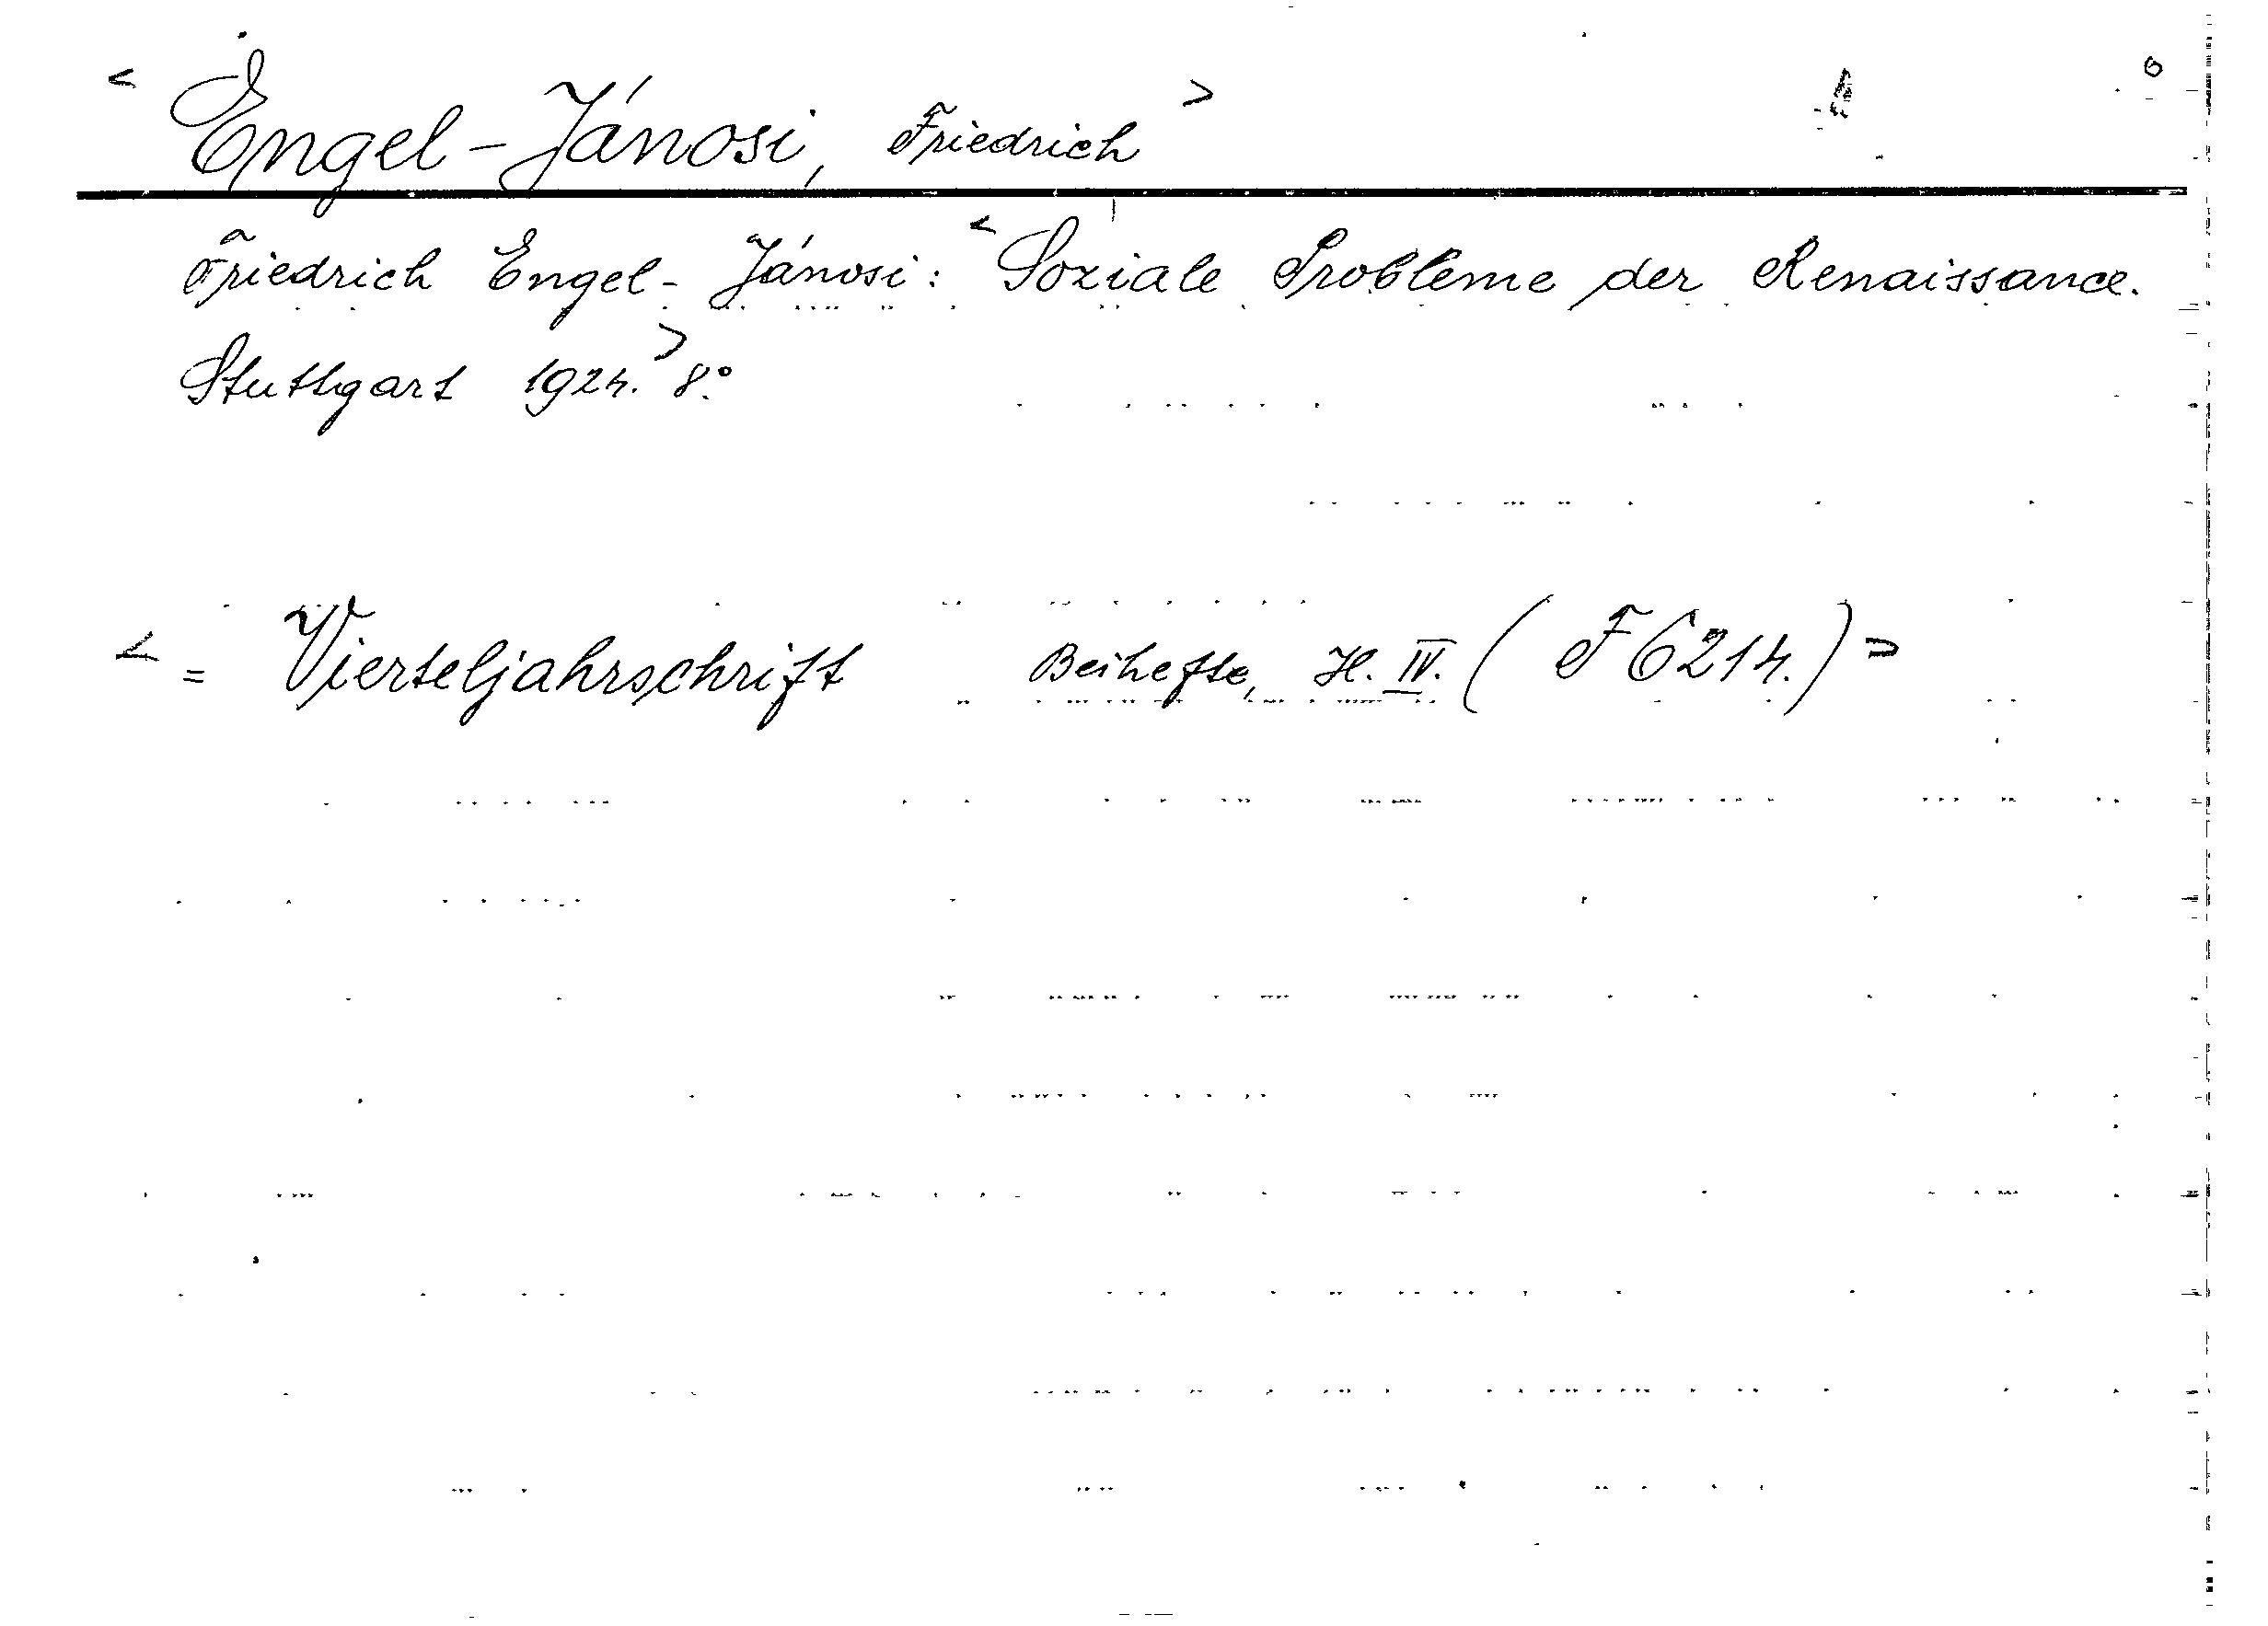 < Engel-Jánosi, Friedrich >
Friedrich Engel-Jánosi: < Soziale Probleme der Renaissance.
Stuttgart 1924. > 8°.
< = Vierteljahrschrift Beihefte, H. IV. ( F 6214. ) >